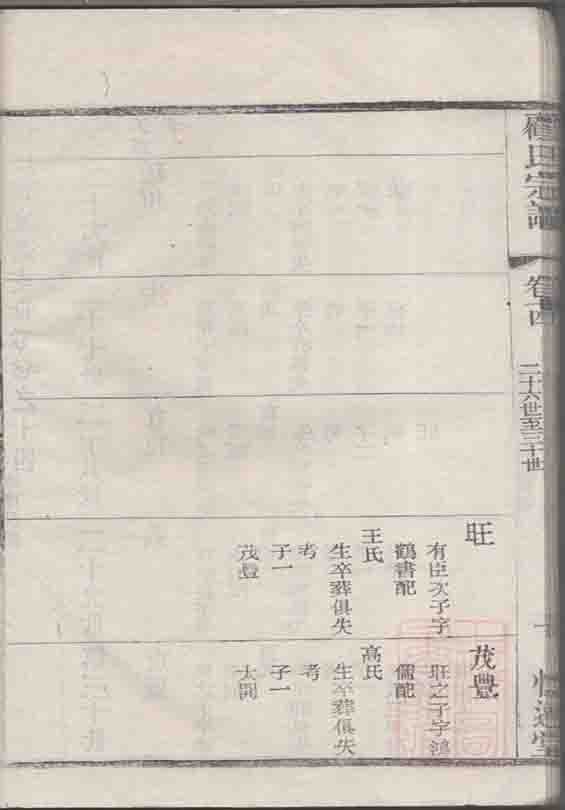 氏宗譜
卷十四
二十六世至三十世
旺
有臣次子字
鶴書配
王氏
生卒葬俱失
考
子一
茂豐
茂豐
旺之子字鴻
儒配
高氏
生卒葬俱失
考
子一
太開